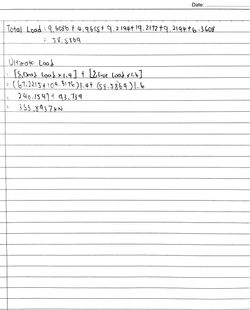 Date:
Total Load: 9.6086 + 4.9615 + 9.2194 + 19.2172 + 9.2194 + 6.3608
= 58.5869
Ultimate Load
= [Σ Dead Load x 1.4] + [Σ Live Load x 1.6]
= (67.2215 + 104.3176) 1.4 + (58.5869) 1.6
= 240.1547 + 93.739
= 333.8937 kN